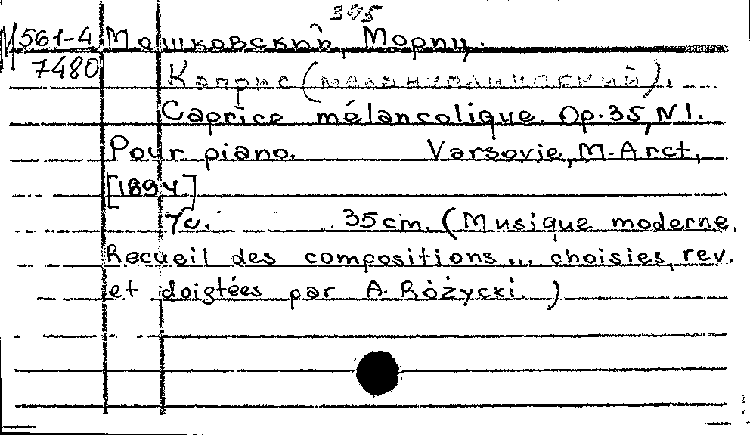 395
М 561-4 Мошковский, Мориц.
7480 Каприс (меланхолический).
Caprice mélancolique. Op. 35, N1.
Pour piano. Varsovie, M. Arct,
[1894]
7с. 35cm. (Musique moderne.
Recueil des compositions... choisies, rev.
et doigtées par A. Różycki.)